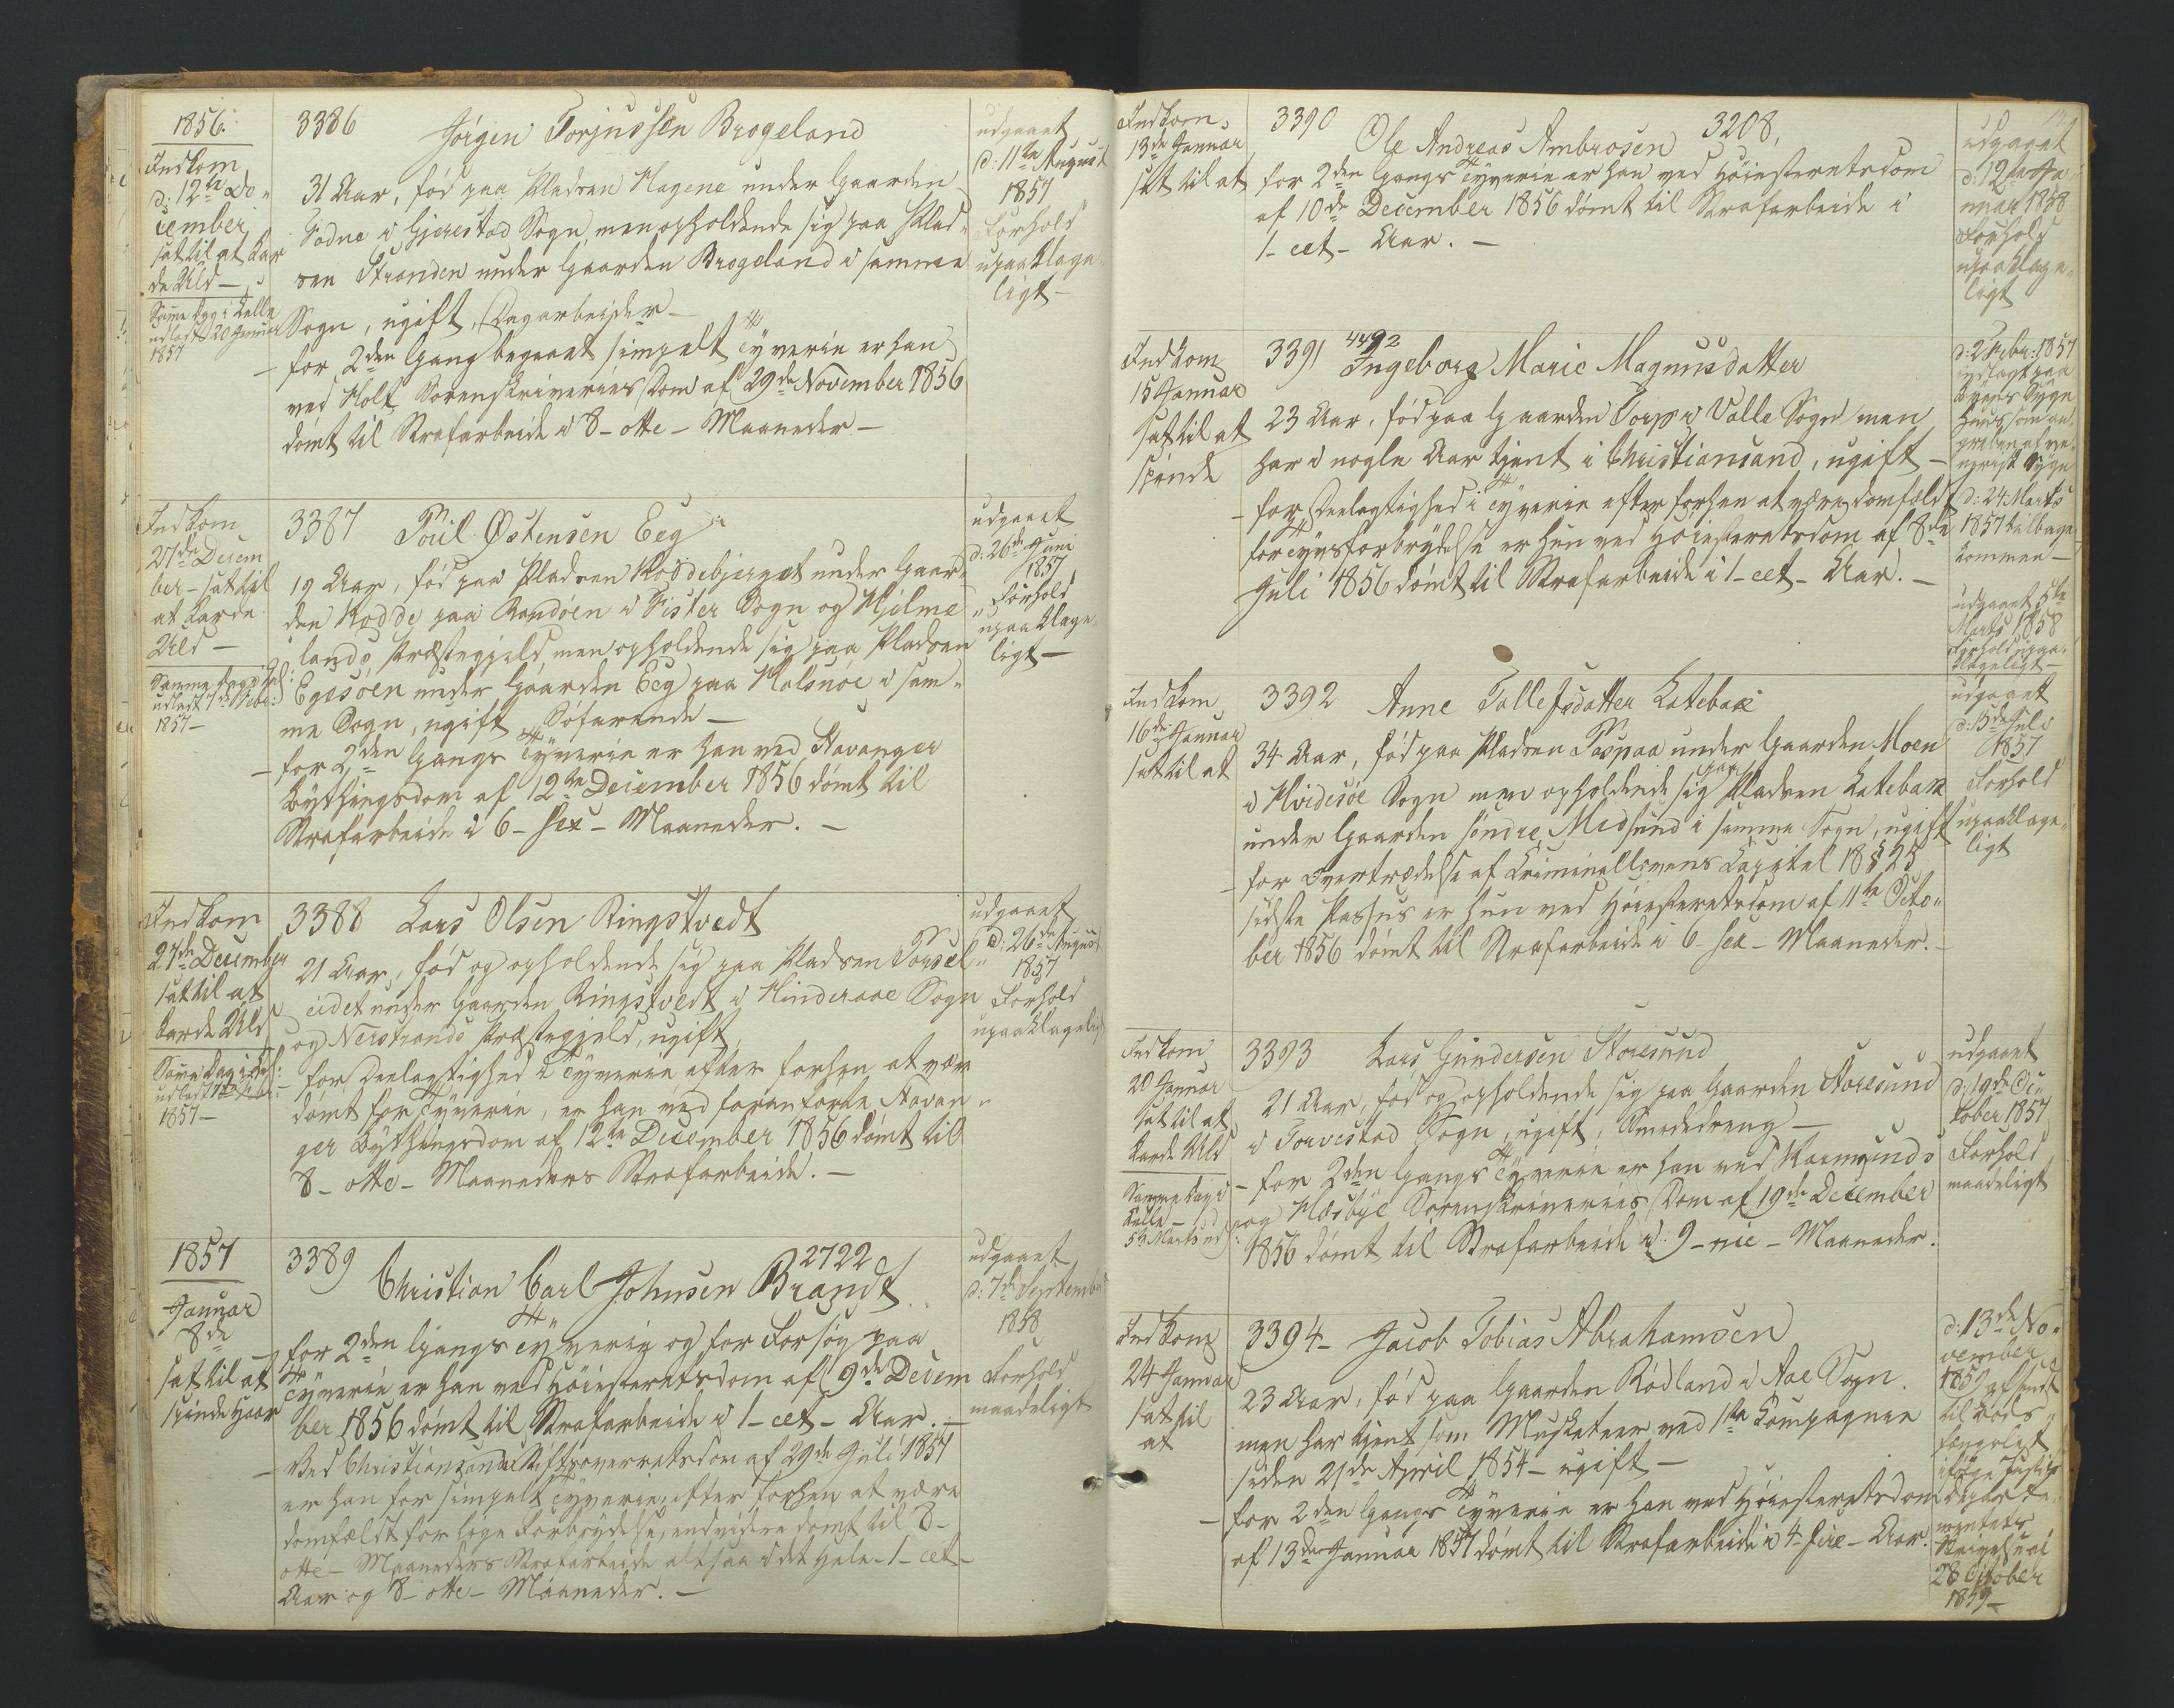 1856.
Indkom
d: 12te De-
cember,
sat til at kar
de Uld —
Samme Dag i Celle
udlagt 20 Januar
1857
3386 Jørgen Torjussen Brogeland
31 Aar, fød paa Pladsen Hagene under Gaarden
i Gjerestad Sogn, men opholdende sig paa Plad-
sen Stranden under Gaarden Brogeland i samme
Sogn, ugift, Dagarbejder —
— for 2den Gang begaaet simpelt Tyverie er han
ved Holt Sorenskriveries Dom af 29de November 1856
dømt til Strafarbeide i 8 - otte - Maaneder —
udgaaet
d: 11te August
1857
Forhold
upaaklage-
ligt —
Indkom
27de Decem
ber - sat til
at karde
Uld —
Samme Dag i Cel:
udlagt 7de Febr:
1857 —
3387 Poul Østensen Eeg
19 Aar, fød paa Pladsen Koddebjerget under Gaar-
den Kodde paa Randøen i Fister Sogn og Hjelme-
lands Præstegjeld, men opholdende sig paa Pladsen
Egesøen under Gaarden Eeg paa Halsnøe i sam-
me Sogn, ugift, Søfarende —
— for 2den Gangs Tyverie er han ved Stavanger
Bythingsdom af 12te December 1856 dømt til
Strafarbeide i 6 - sex - Maaneder. —
udgaaet
d: 26de Juni
1857
Forhold
upaaklage-
ligt —
Indkom
27de December
sat til at
karde Uld
Samme Dag i Cel:
udlagt 17de
1857 —
3388 Lars Olsen Ringstvedt
21 Aar, fød og opholdende sig paa Pladsen Torsel-
eidet under Gaarden Ringstvedt i Hinderaae Sogn
og Nerstrands Præstegjeld, ugift,
for Deelagtighed i Tyverie, efter forhen at være
dømt for Tyverie, er han ved foranførte Stavan-
ger Bythingsdom af 12te December 1856 dømt til
8 - otte - Maaneders Strafarbeide. —
udgaaet
d: 26de August
1857
Forhold
upaaklageligt
1857
Januar
8de
sat til at
spinde Haar
3389 2722
Christian Carl Johnsen Brandt
— for 2den Gangs Tyverie og for Forsøg paa
Tyverie er han ved Høiesteretsdom af 9de Decem
ber 1856 dømt til Strafarbeide i 1 - eet - Aar. —
— Ved Christiansands Stiftsoverretsdom af 29de Juli 1857
er han for simpelt Tyverie, efter forhen at være
domfældt for lige Forbrydelse, endvidere dømt til 8 -
otte - Maaneders Strafarbeide, altsaa i det Hele - 1 - eet -
Aar og 8 - otte - Maaneder. —
udgaaet
d: 7de September
1858
Forhold
maadeligt
Indkom
13de Januar
sat til at
3390 3208,
Ole Andreas Ambrosen
for 2den Gangs Tyverie er han ved Høiesteretsdom
af 10de December 1856 dømt til Strafarbeide i
1 - eet - Aar. —
udgaaet
d: 12te Ja-
nuar 1858
Forhold
upaaklage-
ligt
Indkom
15 Januar
sat til at
spinde
3391 4492
Ingeborg Marie Magnusdatter
23 Aar, fød paa Gaarden Torp i Valle Sogn men
har i nogle Aar tjent i Christiansand, ugift —
— for Deelagtighed i Tyverie efter forhen at være domfældt
for Tyvsforbrydelse er hun ved Høiesteretsdom af 8de
Juli 1856 dømt til Strafarbeide i 1 - eet - Aar. —
d: 2 Febr: 1857
indlagt paa
Byens Syge
huus som an-
greben af ve-
nerisk Syge
d: 24 Marts
1857 tilbage-
kommen —
udgaaet 5te
Marts 1858
Forhold upaa-
klageligt —
Indkom
16de Januar
sat til at
3392 Anne Tallefsdatter Katebak
34 Aar, fød paa Pladsen Paspaa under Gaarden Moen
i Hvidesøe Sogn men opholdende sig paa Pladsen Katebak
under Gaarden søndre Midsund i samme Sogn, ugift
— for Overtrædelse af Criminallovens Capitel 18 § 25
sidste Passus er hun ved Høiesteretsdom af 11te Octo-
ber 1856 dømt til Strafarbeide i 6 - sex - Maaneder. —
udgaaet
d: 15de Juli
1857
Forhold
upaaklage-
ligt
Indkom
20 Januar
sat til at
karde Uld
Samme Dag i
Celle —
5te Marts ud
3393 Lars Gundersen Storesund
21 Aar, fød og opholdende sig paa Gaarden Storesund
i Torvestad Sogn, ugift, Smededreng —
— for 2den Gangs Tyverie er han ved Karmsunds
og Hæsbye Sorenskriveries Dom af 19de December
1856 dømt til Strafarbeide i 9 - nie - Maaneder.
udgaaet
d: 19de Oc-
tober 1857
Forhold
maadeligt
Indkom
24 Januar
sat til
at
3394 - Jacob Tobias Abrahamsen
23 Aar, fød paa Gaarden Rødland i Aae Sogn
men har tjent som Musketeer ved 1ste Compagnie
siden 21de April 1854 - ugift —
— for 2den Gangs Tyverie er han ved Høiesteretsdom
af 13de Januar 1857 dømt til Strafarbeide i 4 - fire - Aar.
d: 13de No-
vember
1859 afsendt
til Bods-
fængslet
ifølge Justits
departe-
mentets
Skrivelse af
28 October
1859 —